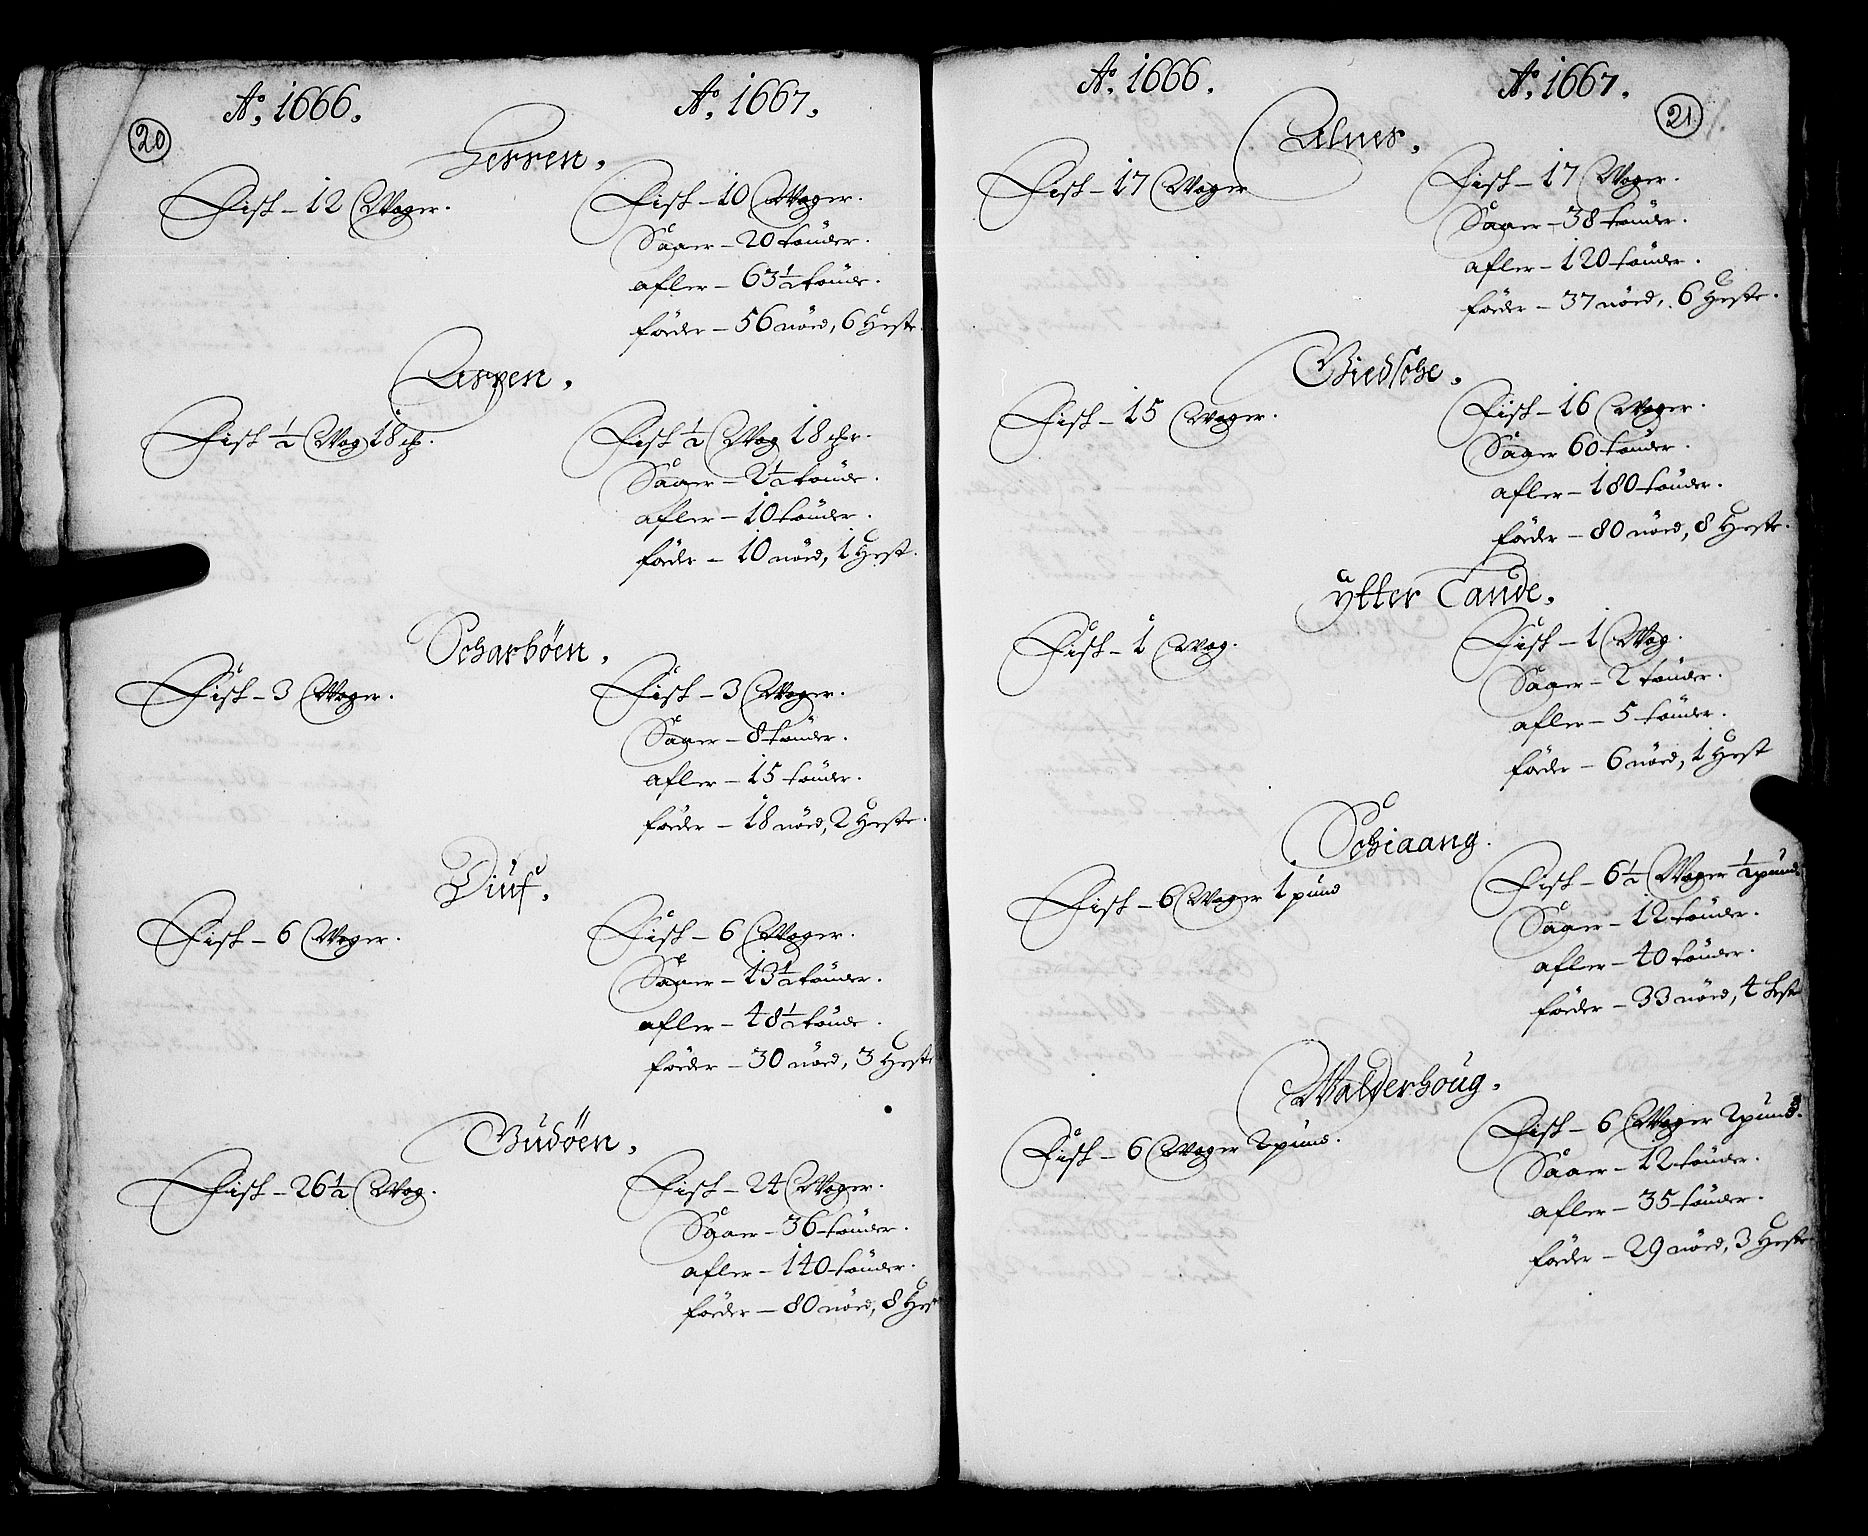 20
Ao. 1666. Ao. 1667.
Gerren.
Fisk - 12 Woger. Fisk - 10 Woger.
Saaer - 20 tønder.
afler - 63 1/2 tønde.
føder - 56 nød, 6 Heste.
Fisk 1/2 Wog 18 Fisk 1/2 Wog 18
Saaer - 2 1/2 tønde.
afler - 10 tønder.
føder - 10 nød, 1 Hest.
Scharbøen.
Fisk - 3 Woger. Fisk - 3 Woger.
Saaer - 8 tønder.
afler - 15 tønder.
føder - 18 nød, 2 Heste.
Diuf.
Fisk - 6 Woger. Fisk - 6 Woger.
Saaer - 13 1/2 tønder.
afler - 48 1/2 tønde.
føder - 30 nød, 3 Heste
Gudøen.
Fisk - 26 1/2 Wog. Fisk - 24 Woger.
Saaer - 36 tønder.
afler - 140 tønder.
føder - 80 nød, 8 Hest
21
Ao. 1666. Ao. 1667.
Alnes.
Fisk - 17 Woger Fisk - 17 Woger.
Saaer - 38 tønder.
afler - 120 tønder.
føder - 37 nød, 6 Heste.
Giedsche.
Fisk - 15 Woger. Fisk - 16 Woger.
Saaer 60 tønder.
afler - 180 tønder.
føder - 80 nød, 8 Heste.
ÿtter Lande.
Fisk - 1 Wog. Fisk - 1 Wog.
Saaer - 2 tønder.
afler - 5 tønder.
føder - 6 nød, 1 Hest
Schiaang.
Fisk - 6 Woger 1 pund Fisk - 6 1/2 Woger 1/2 pund
Saaer - 12 tønder.
afler - 40 tønder.
føder - 33 nød, 4 Hest
Walderhoug.
Fisk - 6 Woger 2 pund. Fisk - 6 Woger 2 pund.
Saaer - 12 tønder.
afler - 35 tønder.
føder - 29 nød, 3 Heste